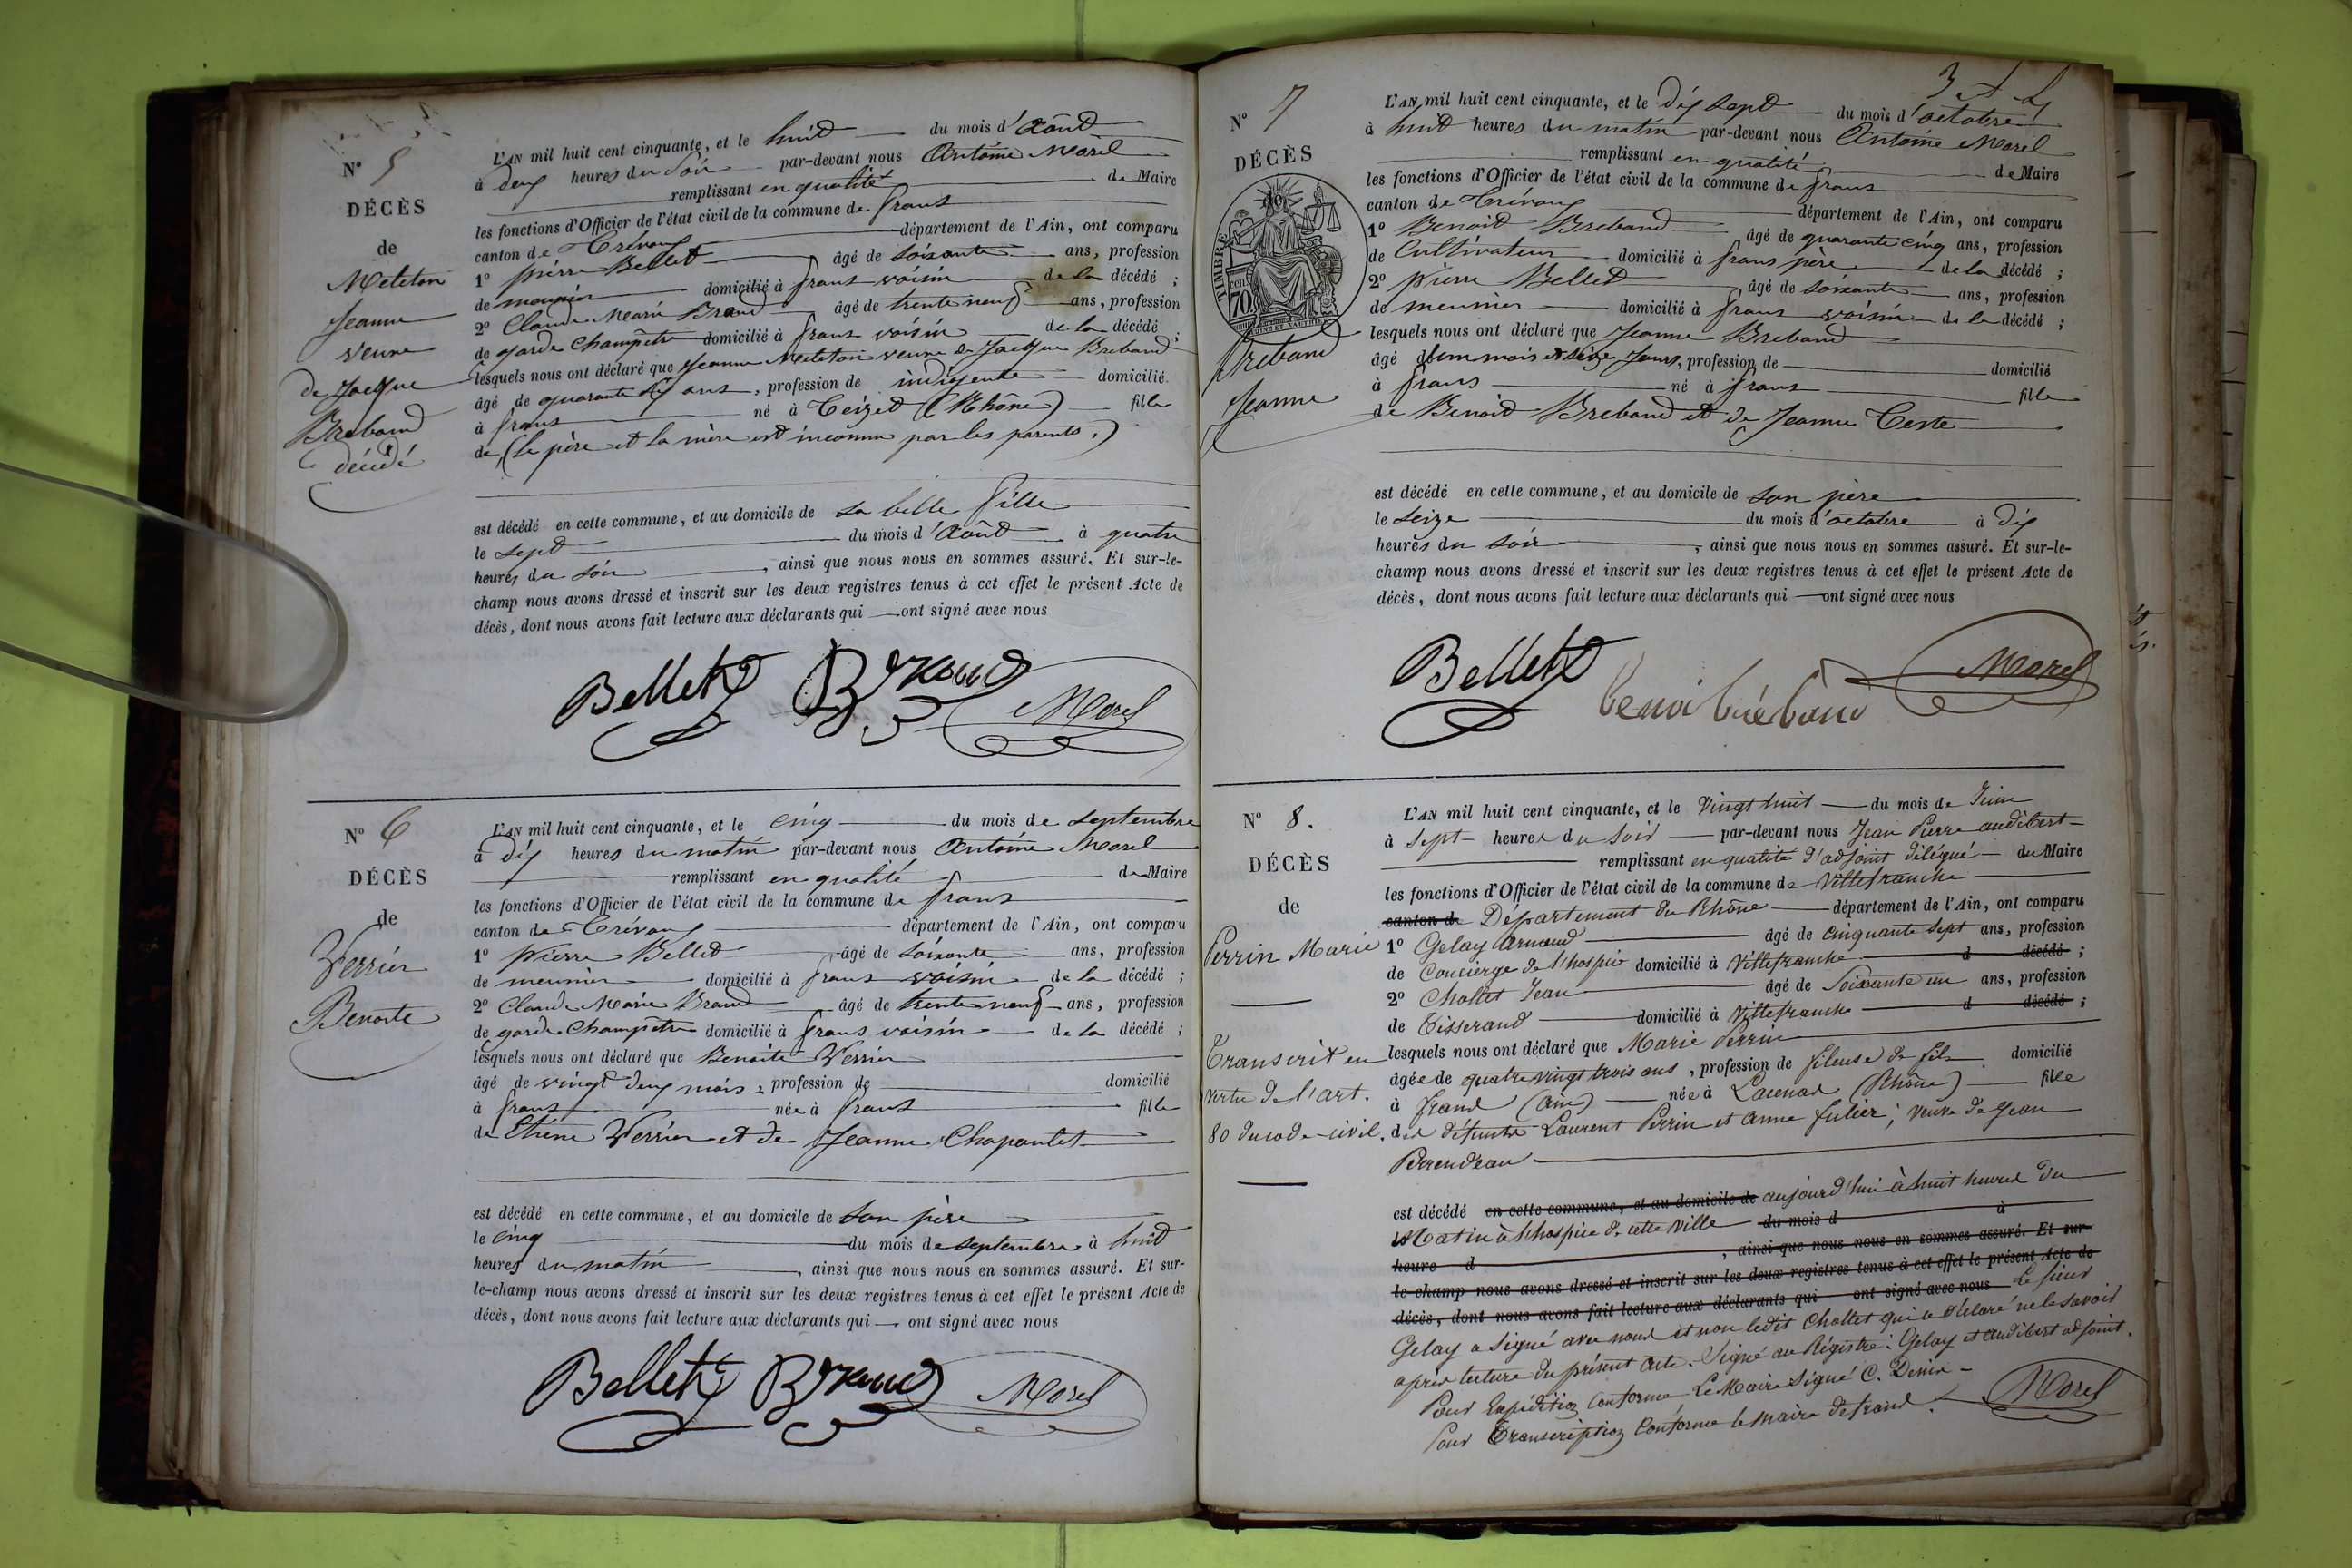 N° 5
DÉCÈS
de
Meteton
Jeanne
veuve
de Jacque
Breband
décédé
L'AN mil huit cent cinquante, et le huit du mois d'Août
à deux heures du Soir par-devant nous Antoine Morel
remplissant en qualité de Maire
les fonctions d'Officier de l'état civil de la commune de frans
canton de Trévoux département de l'Ain, ont comparu
1° pierre Bellet âgé de Soixante ans, profession
de meunier domicilié à frans voisin de la décédé ;
2° Claude Marie Brand âgé de trente neuf ans, profession
de garde Champêtre domicilié à frans voisin de la décédé ;
lesquels nous ont déclaré que Jeanne Meteton veuve de Jacque Breband
âgé de quarante dix ans, profession de indigente domicilié
à frans né à Teizet (Rhône) fille
de (le père et la mère est inconnu par les parents.)
est décédé en cette commune, et au domicile de sa belle fille
le sept du mois d'Août à quatre
heures du Soir, ainsi que nous nous en sommes assuré. Et sur-le-
champ nous avons dressé et inscrit sur les deux registres tenus à cet effet le présent Acte de
décès, dont nous avons fait lecture aux déclarants qui ont signé avec nous
Bellet Brand Morel
N° 6
DÉCÈS
de
Verrier
Benoite
L'AN mil huit cent cinquante, et le cinq du mois de septembre
à dix heures du matin par-devant nous Antoine Morel
remplissant en qualité de Maire
les fonctions d'Officier de l'état civil de la commune de frans
canton de Trévoux département de l'Ain, ont comparu
1° pierre Bellet âgé de soixante ans, profession
de meunier domicilié à frans voisin de la décédé ;
2° Claude Marie Brand âgé de trente neuf ans, profession
de garde Champêtre domicilié à frans voisin de la décédé ;
lesquels nous ont déclaré que Benoite Verrier
âgé de vingt deux mois, profession de domicilié
à frans née à frans fille
de Etiene Verrier et de Jeanne Chapontet
est décédé en cette commune, et au domicile de son père
le cinq du mois de septembre à huit
heures du matin, ainsi que nous nous en sommes assuré. Et sur-
le-champ nous avons dressé et inscrit sur les deux registres tenus à cet effet le présent Acte de
décès, dont nous avons fait lecture aux déclarants qui ont signé avec nous
Bellet Brand Morel
N° 7
DÉCÈS
de
TIMBRE
70
Breband
Jeanne
L'AN mil huit cent cinquante, et le dix sept du mois d'octobre
à huit heures du matin par-devant nous Antoine Morel
remplissant en qualité de Maire
les fonctions d'Officier de l'état civil de la commune de frans
canton de Trévoux département de l'Ain, ont comparu
1° Benoit Breband âgé de quarante cinq ans, profession
de Cultivateur domicilié à frans père de la décédé ;
2° pierre Bellet âgé de soixante ans, profession
de meunier domicilié à frans voisin de la décédé ;
lesquels nous ont déclaré que Jeanne Breband
âgé d'un mois et seize Jours, profession de domicilié
à frans né à frans fille
de Benoit Breband et de Jeanne Teste
est décédé en cette commune, et au domicile de son père
le seize du mois d'octobre à dix
heures du soir, ainsi que nous nous en sommes assuré. Et sur-le-
champ nous avons dressé et inscrit sur les deux registres tenus à cet effet le présent Acte de
décès, dont nous avons fait lecture aux déclarants qui ont signé avec nous
Bellet benoi bréband Morel
N° 8.
DÉCÈS
de
Perrin Marie
Transcrit en
vertu de l'art.
80 du code civil.
L'AN mil huit cent cinquante, et le vingt huit du mois de Juin
à sept heures du soir par-devant nous Jean Pierre audibert
remplissant en qualité d'adjoint délégué du Maire
les fonctions d'Officier de l'état civil de la commune de Villefranche
canton de Département du Rhône département de l'Ain, ont comparu
1° Gelay Arnaud âgé de cinquante sept ans, profession
de Concierge de l'hospice domicilié à Villefranche d décédé ;
2° Chollet Jean âgé de Soixante un ans, profession
de Tisserand domicilié à Villefranche d décédé ;
lesquels nous ont déclaré que Marie Perrin
âgée de quatre vingt trois ans, profession de fileuse de fil domicilié
à frans (Ain) née à Lacenas (Rhône) fille
des défunts Laurent Perrin et Anne fulier ; veuve de Jean
Perendeau
est décédé en cette commune, et au domicile de aujourd'hui à huit heures du
Matin à l'hospice de cette ville du mois d à
heure d , ainsi que nous nous en sommes assuré. Et sur-
le-champ nous avons dressé et inscrit sur les deux registres tenus à cet effet le présent Acte de
décès, dont nous avons fait lecture aux déclarants qui ont signé avec nous Le sieur
Gelay a signé avec nous et non ledit Chollet qui a déclaré ne le savoir
après lecture du présent acte. Signé au Régistre : Gelay et audibert adjoint.
Pour Expédition Conforme Le Maire Signé C. Denis
Pour Transcription Conforme le Maire de frans. Morel